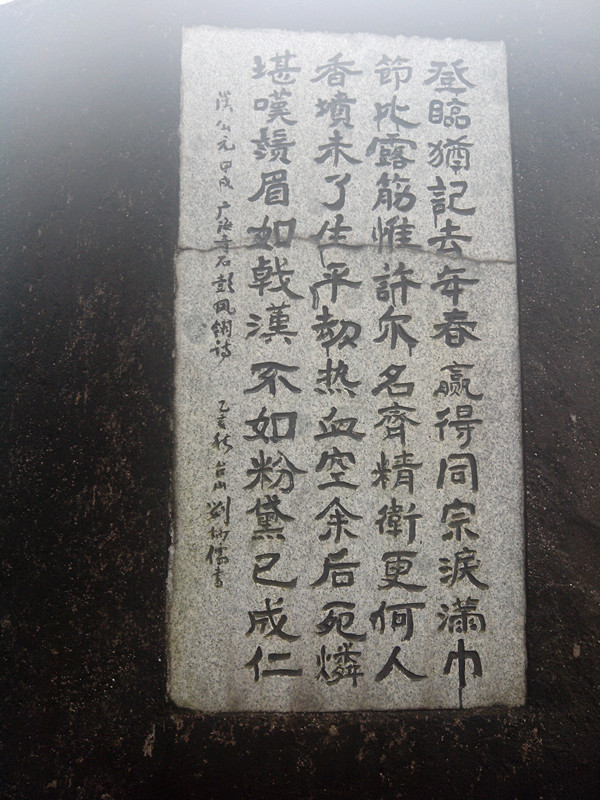 登臨猶記去年春贏得同宗淚滿巾
節比露筋惟許尔名齊精衛更何人
香墳未了生平劫熱血空余后死燐
堪嘆鬚眉如戟漢不如粉黛已成仁
漢公元甲戌广海奇石彭鳳翎詩 乙亥秋台山劉